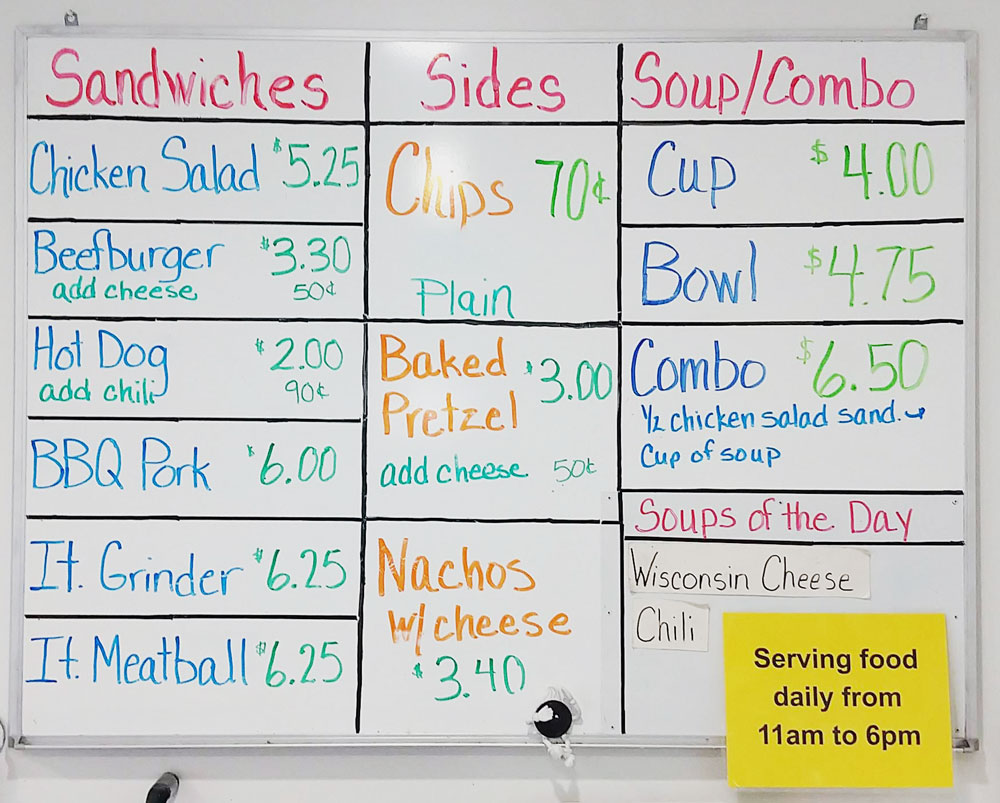 Sandwiches
Chicken Salad $5.25
Beefburger $3.30
add cheese 50¢
Hot Dog $2.00
add chili 90¢
BBQ Pork $6.00
It. Grinder $6.25
It. Meatball $6.25
Sides
Chips 70¢
Plain
Baked $3.00
Pretzel
add cheese 50¢
Nachos
w/cheese
$3.40
Soup/Combo
Cup $4.00
Bowl $4.75
Combo $6.50
1/2 chicken salad sand.
Cup of soup
Soups of the Day
Wisconsin Cheese
Chili
Serving food
daily from
11am to 6pm